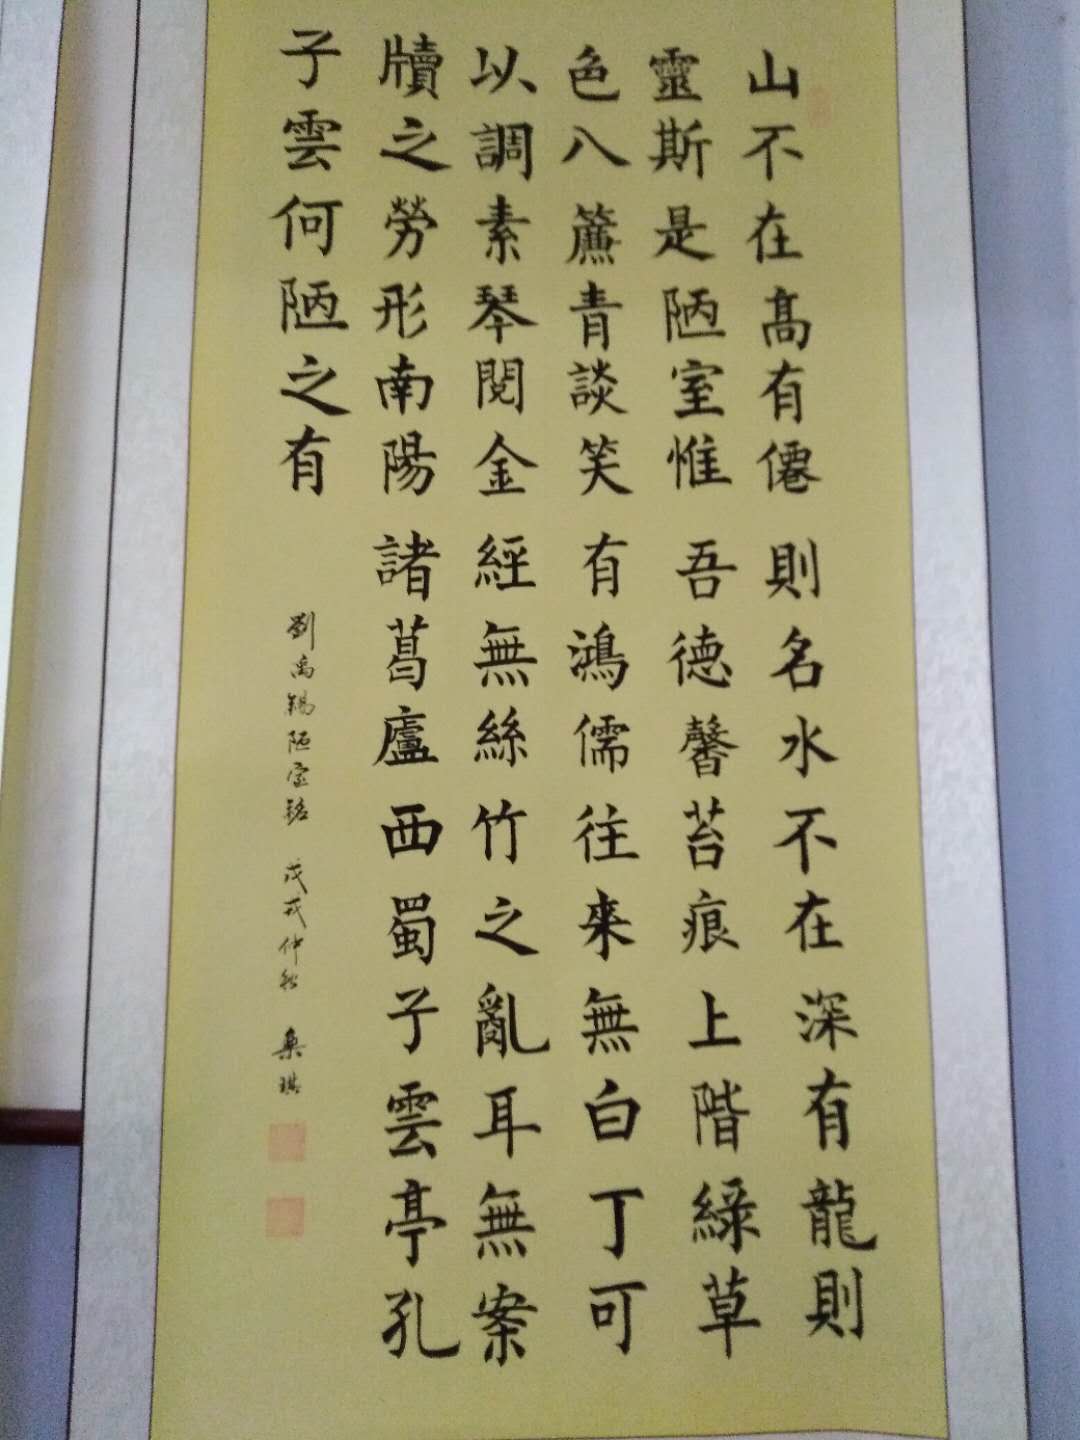 山不在高有僊則名水不在深有龍則
靈斯是陋室惟吾德馨苔痕上階綠草
色八簾青談笑有鴻儒往來無白丁可
以調素琴閱金經無絲竹之亂耳無案
牘之勞形南陽諸葛廬西蜀子雲亭孔
子雲何陋之有
劉禹錫陋室銘 戊戌仲秋 桑琪